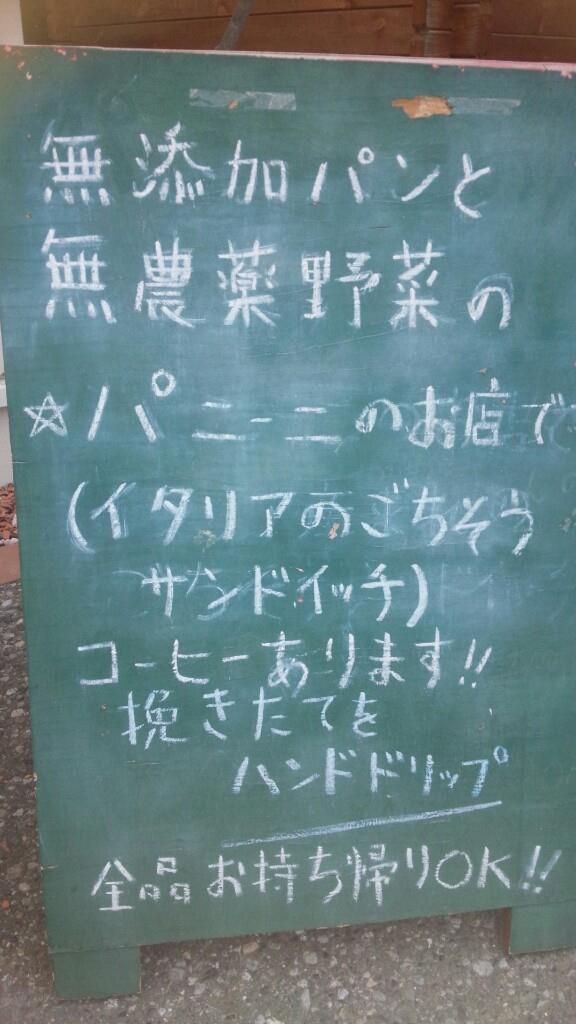 無添加パンと
無農薬野菜の
☆パニーニのお店で
(イタリアのごちそう
サンドイッチ)
コーヒーあります!!
挽きたてを
ハンドドリップ
全品お持ち帰りOK!!